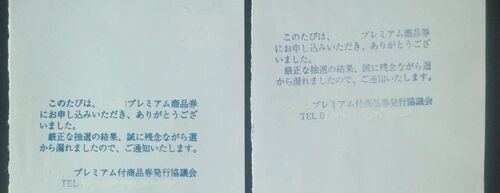 このたびは、 プレミアム商品券
にお申し込みいただき、ありがとうござ
いました。
厳正な抽選の結果、誠に残念ながら選
から漏れましたので、ご通知いたします。
プレミアム付商品券発行協議会
TEL
このたびは、 プレミアム商品券
にお申し込みいただき、ありがとうござ
いました。
厳正な抽選の結果、誠に残念ながら選
に漏れましたので、ご通知いたします。
プレミアム付商品券発行協議会
TEL 0